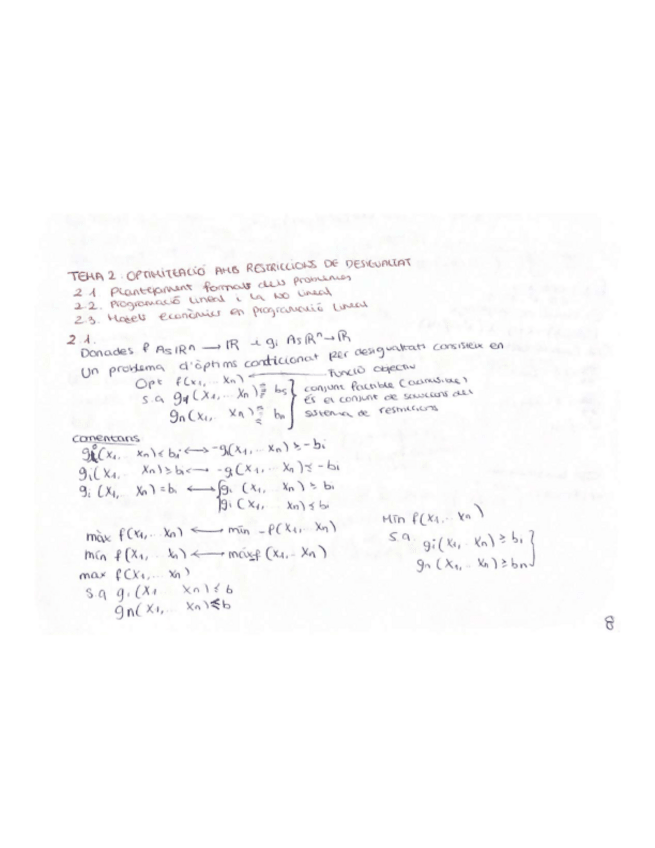 TEMA 2. OPTIMITZACIÓ AMB RESTRICCIONS DE DESIGUALTAT
2.1. Plantejament formal dels problemes
2.2. Programació lineal i la no lineal
2.3. Models econòmics en programació lineal
2.1.
Donades f A⊆ℝⁿ → ℝ i gi A⊆ℝⁿ→ℝ
Un problema d'òptims condicionat per desigualtats consisteix en
Opt f(x1,... xn) ← Funció objectiu
s.a g1(x1,... xn) ≥≤ b1 } conjunt factible
gn(x1, xn) ≥≤ bn És el conjunt de solucions del
sistema de restriccions
comentaris
gi(x1, xn) ≤ bi ↔ -gi(x1,... xn) ≥ -bi
gi(x1,.. xn) ≥ bi ↔ -gi(x1,... xn) ≤ -bi
gi(x1, xn) = bi ↔ { gi (x1,.. xn) ≥ bi
gi(x1, xn) ≤ bi
màx f(x1,... xn) ↔ mín -f(x1,.. xn)
mín f(x1, xn) ↔ màx-f(x1,.. xn)
max f(x1,... xn)
s.a gi(x1 xn) ≤ b
gn(x1, xn) ≤ b
Mín f(x1,.. xn)
s.a
gi(x1, xn) ≥ b1 }
gn(x1, xn) ≥ bn
8